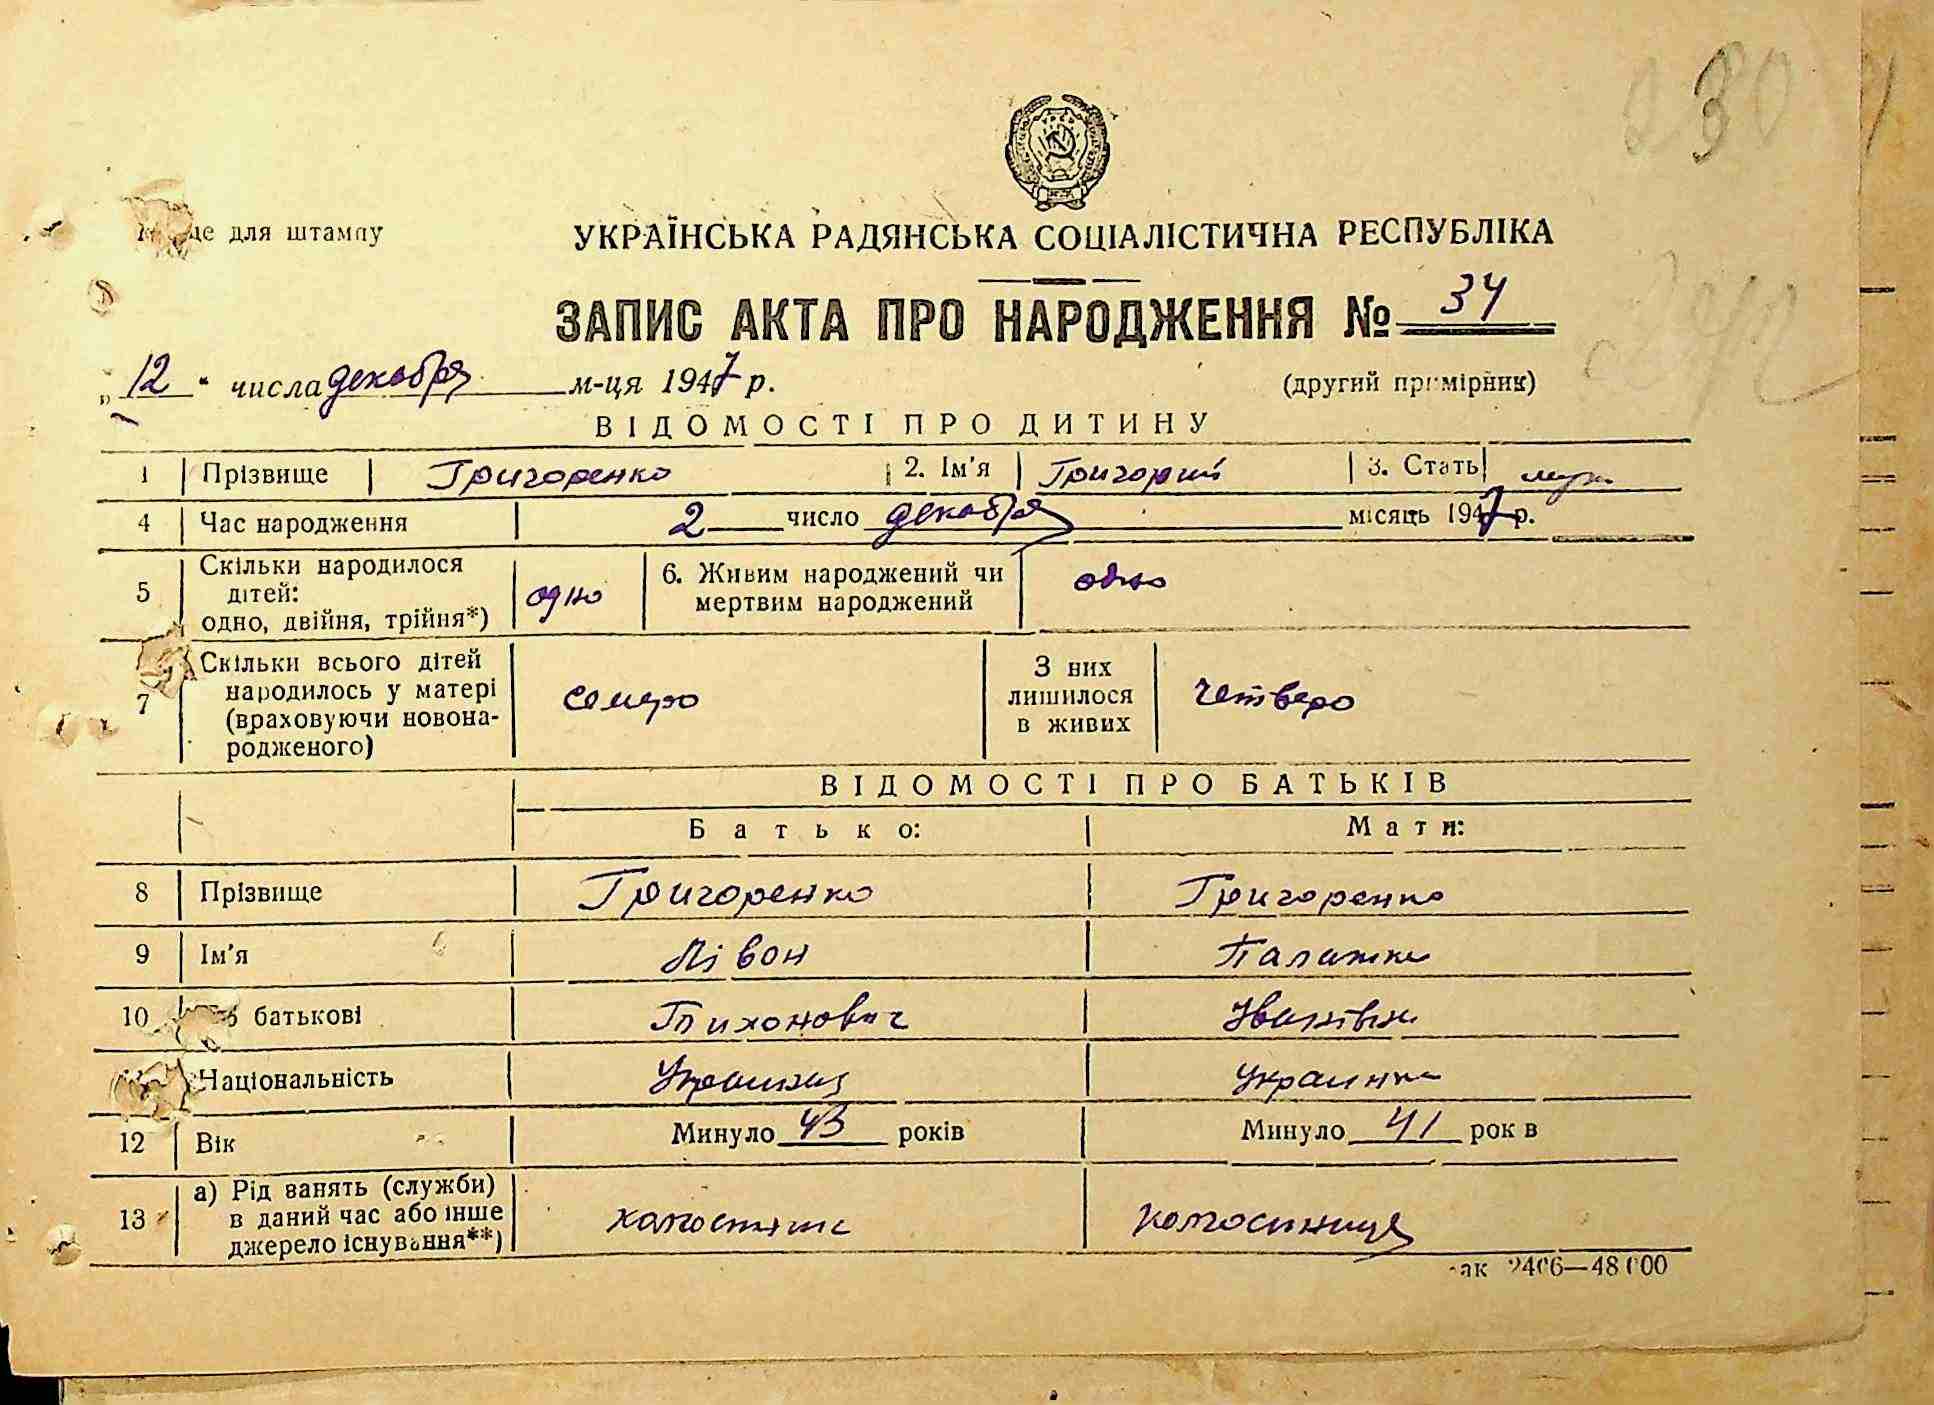 230
Місце для штампу
УКРАЇНСЬКА РАДЯНСЬКА СОЦІАЛІСТИЧНА РЕСПУБЛІКА
ЗАПИС АКТА ПРО НАРОДЖЕННЯ № 34
„ 12 " числа декабря м-ця 1947 р. (другий примірник)
ВІДОМОСТІ ПРО ДИТИНУ
1 Прізвище Григоренко 2. Ім'я Григорий 3. Стать муж
4 Час народження 2 число декабря місяць 1947 р.
5 Скільки народилося дітей: одно, двійня, трійня*) одно 6. Живим народжений чи мертвим народжений одно
7 Скільки всього дітей народилось у матері (враховуючи новонародженого) семеро З них лишилося в живих четверо
ВІДОМОСТІ ПРО БАТЬКІВ
Батько: Мати:
8 Прізвище Григоренко Григоренко
9 Ім'я Лівон Палажка
10 По батькові Тихонович Іванівна
11 Національність Украинец украинка
12 Вік Минуло 43 років Минуло 41 рок в
13 а) Рід занять (служби) в даний час або інше джерело існування**) колгоспник колгоспниця
ак 2406—48 000